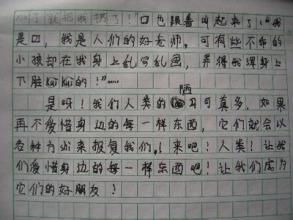 就把我摸了！口也跟着叫起来了："我
是口，我是人们的好老师，可有些不乖的
小孩却在我身上乱写乱画，弄得我浑身上
下脏kūi kūi的！"……
是呀！我们人类的陋习可真多，如果
再不爱惜身边的每一样东西，它们就会以
各种方式来报复我们，来吧！人类！让我
们爱惜身边的每一样东西吧！让我们成为
它们的好朋友！